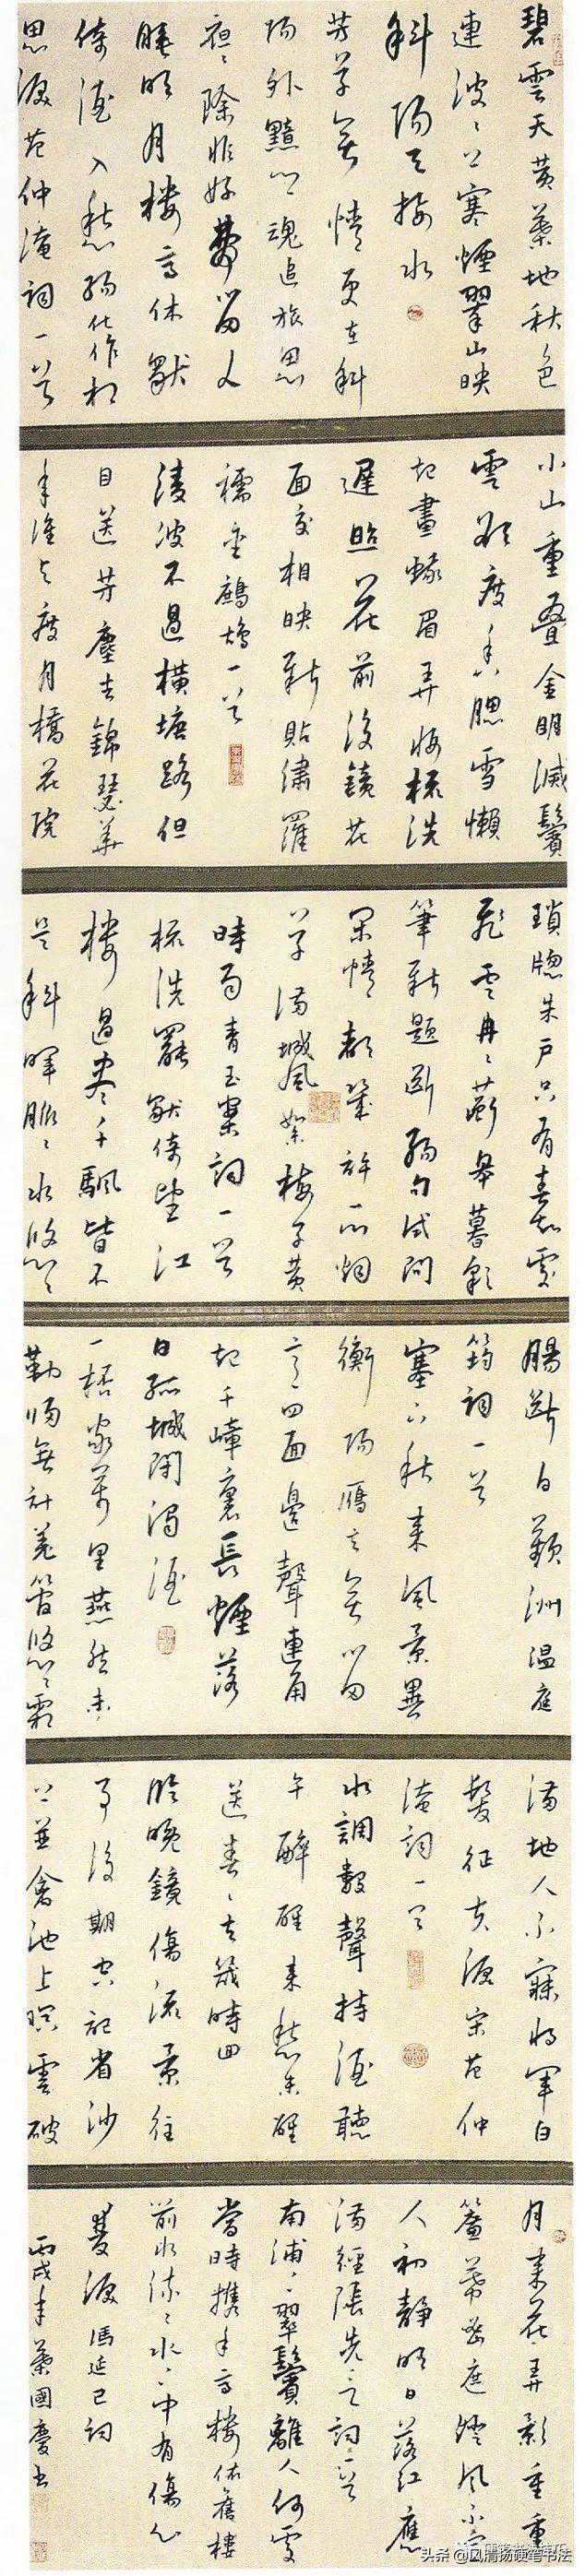 碧雲天黄葉地秋色
連波々上寒煙翠山映
斜陽天接水
芳草無情更在斜
陽外黯鄉魂追旅思
夜々除非好夢留人
睡明月樓高休獨
倚酒入愁腸化作相
思淚范仲淹詞一首
小山重疊金明滅鬢
雲欲度香腮雪懶
起畫蛾眉弄妝梳洗
遲照花前後鏡花
面交相映新貼繡羅
襦金鷓鴣一首
淩波不過橫塘路但
目送芳塵去錦瑟華
年誰與度月橋花院
瑣牕朱戶只有春知處
飛雲冉々蘅皋暮彩
筆新題斷腸句試問
閑情都幾許一川烟
草滿城風絮梅子黃
時雨青玉案詞一首
梳洗罷獨倚望江
樓過盡千颿皆不
是斜暉脈々水悠々
腸斷白蘋洲温庭
筠詞一首
塞下秋來風景異
衡陽雁去無留
意四面邊聲連角
起千嶂裏長煙落
日孤城閉濁酒
一杯家萬里燕然未
勒歸無計羌管悠々霜
滿地人不寐將軍白
髮征夫淚宋范仲
淹詞一首
水調數聲持酒聽
午醉醒來愁未醒
送春々去幾時回
臨晚鏡傷流景往
事後期空記省沙
上並禽池上暝雲破
月來花弄影重重
簾幕密遮燈風不定
人初靜明日落紅應
滿徑張先之詞一首
南浦々翠鬢離人何處
當時攜手高樓依舊樓
前水流々水々中有傷心
雙淚馮延巳詞
丙戌年葉國慶書
头条 @风清扬硬笔书法